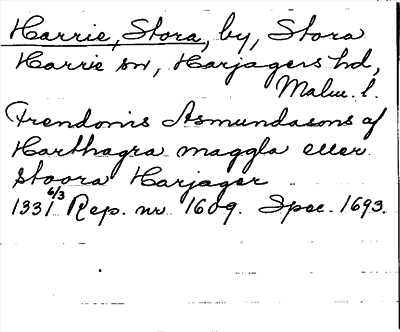 Harrie, Stora, by, Stora
Harrie sn, Harjagers hd,
Malm. l.
Trendonis Asmundasons af
Harthagra maggla eller
Stoora Harjager
1331 6/3 Rep. nr 1609. Spec. 1693.